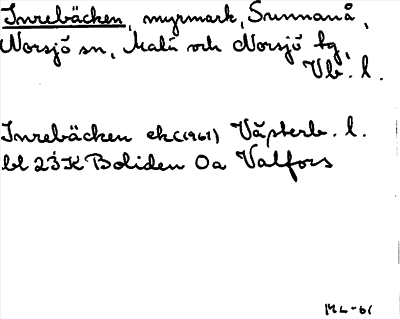 Inrebäcken, myrmark, Sunnanå,
Norsjö sn, Malå och Norsjö tg,
Vb. l.
Inrebäcken ek(1961) Västerb. l.
bl 23K Boliden 0a Valfors
ML-61